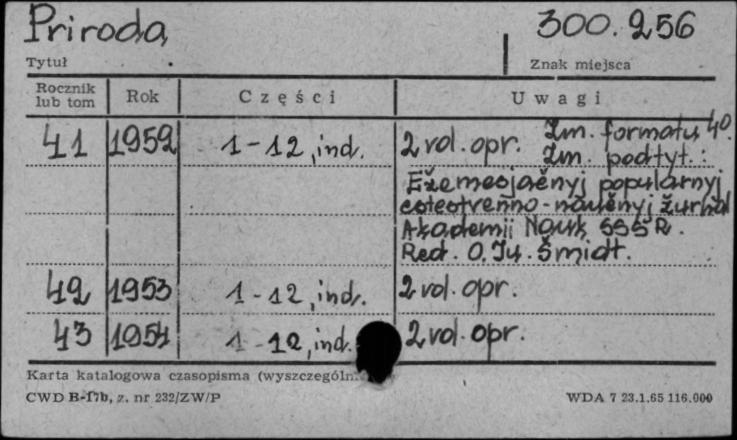 Priroda, 300.256
Tytuł Znak miejsca
Rocznik lub tom Rok Części Uwagi
41 1952 1-12, ind. 2 vol. opr. Zm. formatu 4°.
Zm. podtyt.:
Ežemesjačnyj popularnyj
estestvenno-naučnyj žurnal
Akademii Nauk SSSR.
Red. O. Ju. Šmidt.
42 1953 1-12, ind. 2 vol. opr.
43 1954 1-12, ind. 2 vol. opr.
Karta katalogowa czasopisma
CWD B-17b, z. nr 232/ZW/P WDA 7 23.1.65 116.000